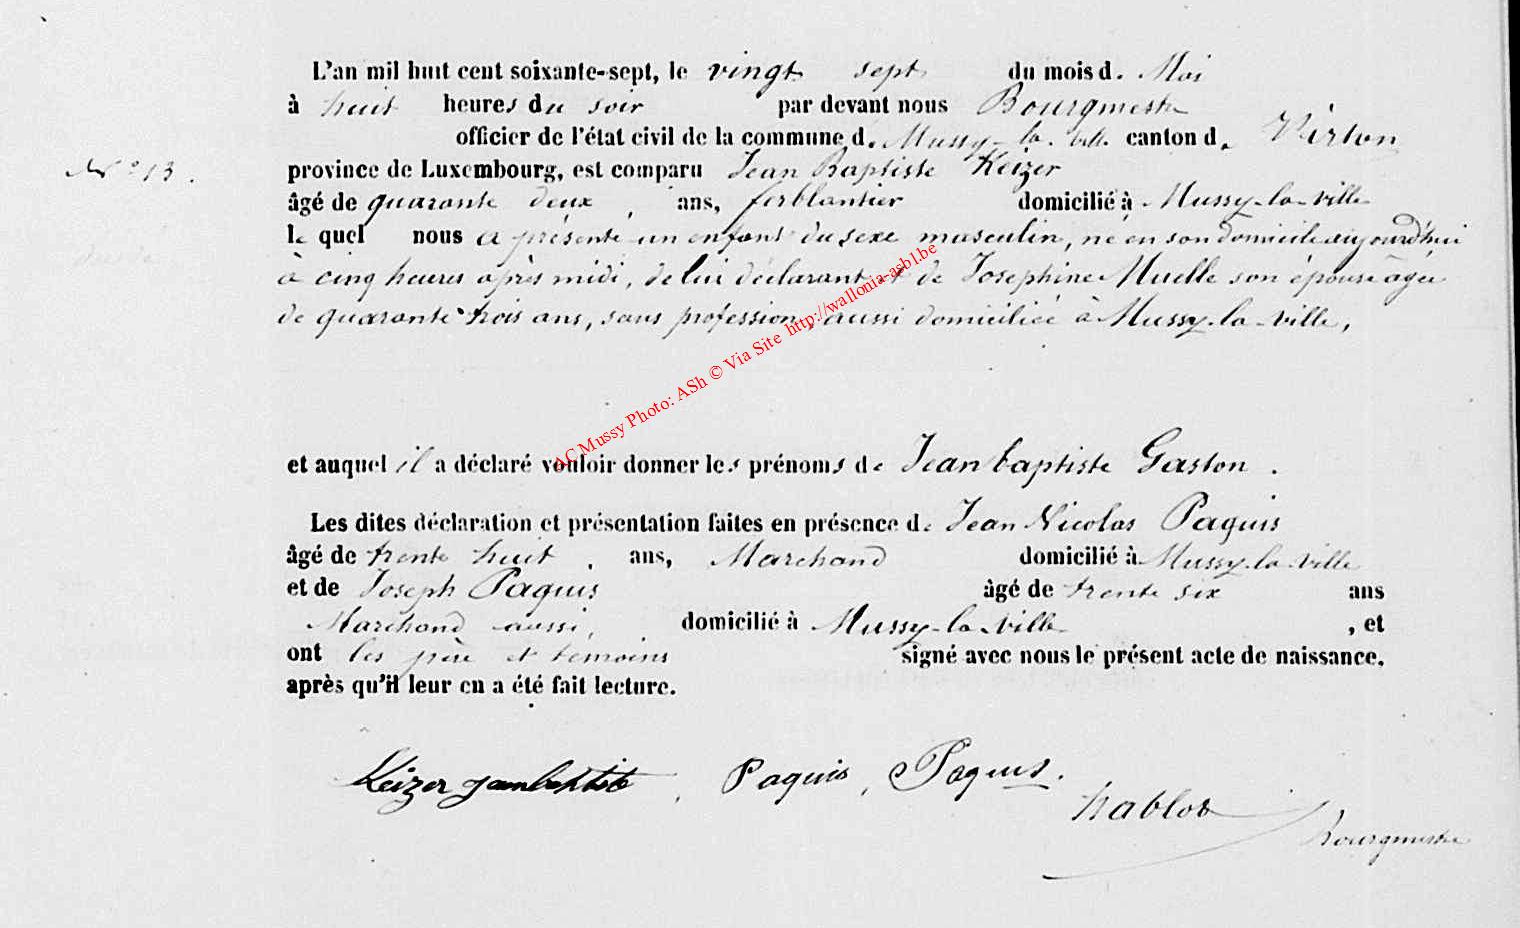 L'an mil huit cent soixante-sept, le vingt sept du mois d. Mai
à huit heures du soir par devant nous Bourgmestre
officier de l'état civil de la commune d. Mussy-la-ville canton d. Virton
N° 13.
province de Luxembourg, est comparu Jean Baptiste Keizer
âgé de quarante deux, ans, ferblantier domicilié à Mussy-la-ville
le quel nous a présenté un enfant du sexe masculin, né en son domicile aujourd'hui
à cinq heures après midi, de lui déclarant et de Josephine Muelle son épouse âgée
de quarante trois ans, sans profession, aussi domiciliée à Mussy-la-ville,
AC Mussy Photo: ASh © Via Site http://wallonia-asbl.be
et auquel il a déclaré vouloir donner les prénoms de Jean baptiste Gaston.
Les dites déclaration et présentation faites en présence de Jean Nicolas Paquis
âgé de trente huit, ans, Marchand domicilié à Mussy-la-ville
et de Joseph Paquis âgé de trente six ans
Marchand aussi, domicilié à Mussy-la-ville, et
ont les père et témoins signé avec nous le présent acte de naissance,
après qu'il leur en a été fait lecture.
Keizer jeanbaptiste, Paquis, Paquis.
hablot
bourgmestre